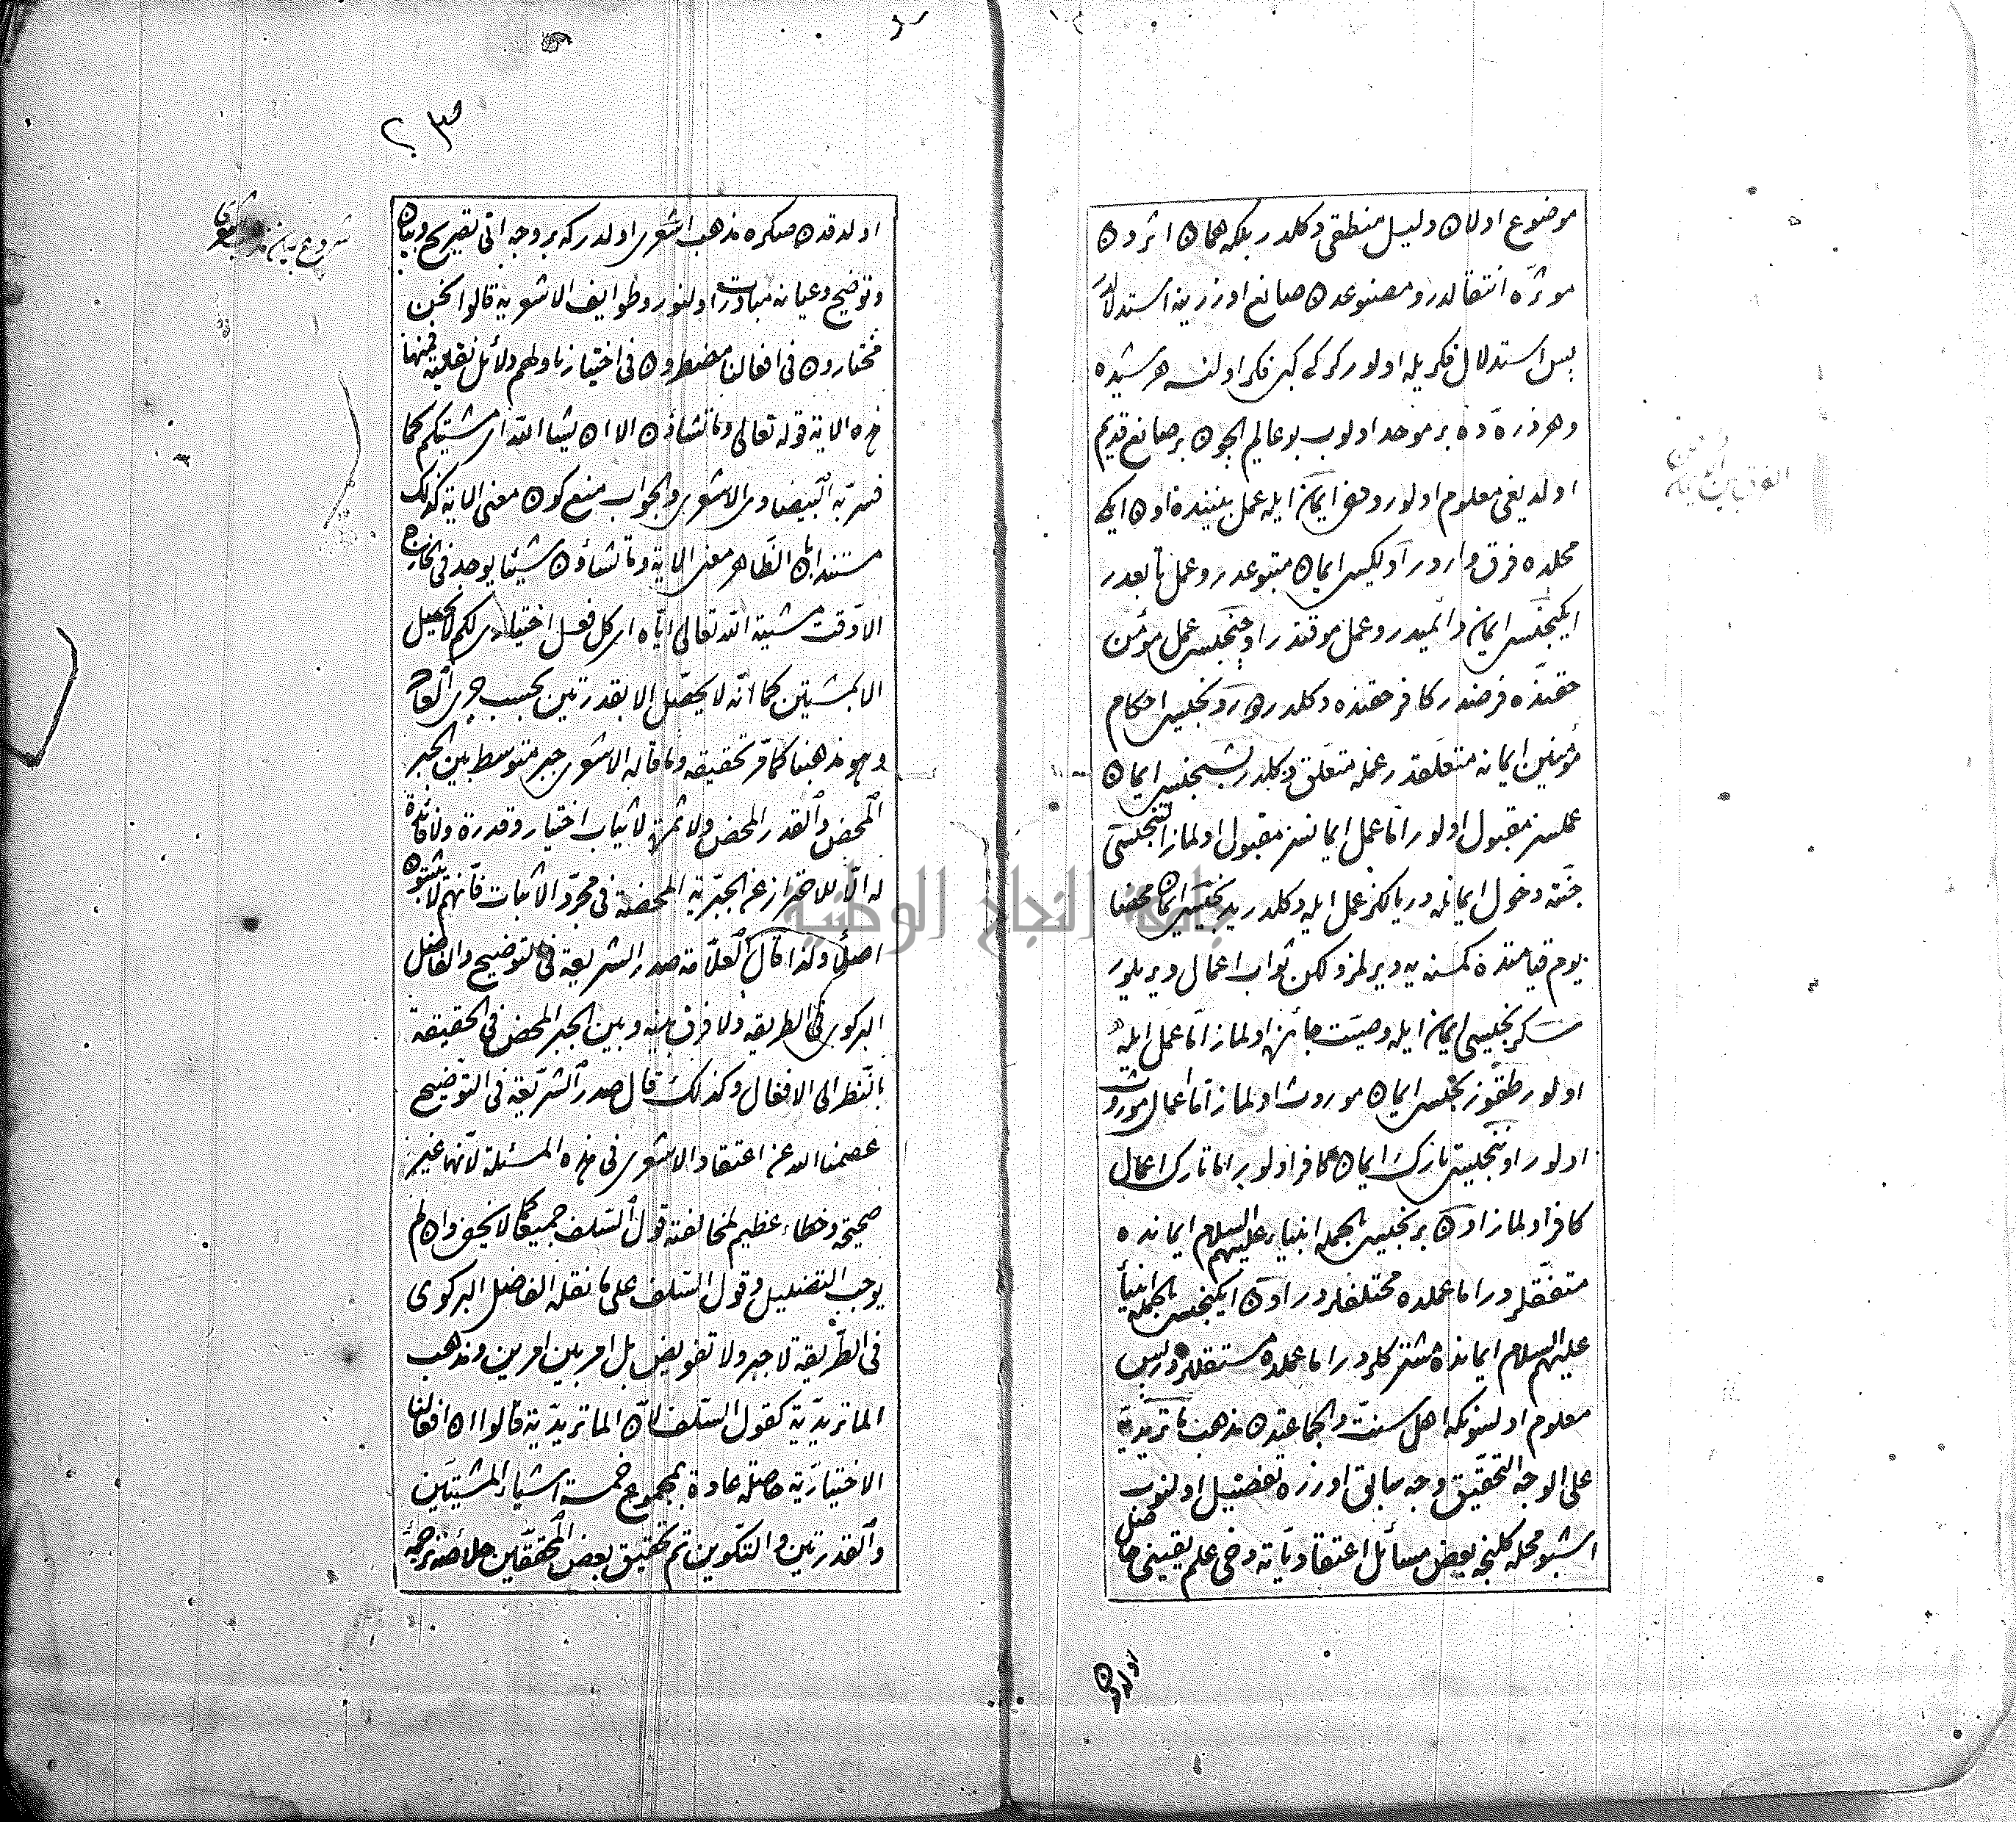 موضوع اولان دليل منطقى دكلدر بلكه همان اثردن
موثره انتقالدر و مصنوعدن صانع اوزرينه استدلالدر
پس استدلال فكريله اولور كرك كبر فكر اولنسه هر شيده
وهر ذره ده بر موحد اولوب بو عالم ايچون بر صانع قديم
اولديغى معلوم اولور دخى ايمان ايله عمل بيننده اون ايكى
محلده فرق واردر اولكيسى ايمان متبوعدر وعمل تابعدر
ايكنجيسى ايمان دائميدر وعمل موقتدر اوچنجيسى عمل مؤمن
حقنده فرضدر كافر حقنده دكلدر دردنجيسى احكام
مؤمنين ايمانه متعلقدر عمله متعلق دكلدر بشنجيسى ايمان
عملسز مقبول اولور اما عمل ايمانسز مقبول اولماز التنجيسى
جنته دخول ايمانله در يالكز عمل ايله دكلدر يدنجيسى ايمان محضا
يوم قيامتده كمسنه يه ويرلمز ولكن ثواب اعمال ويريلور
سكزنجيسى ايمان ايله وصيت جائز اولماز اما عمل ايله
اولور طقوزنجيسى ايمان موروث اولماز اما اعمال موروث
اولور اوننجيسى تارك ايمان كافر اولور اما تارك اعمال
كافر اولماز اون برنجيسى جمله انبيا عليهم السلام ايمانده
متفقلردر اما عملده مختلفلردر اون ايكنجيسى جمله انبيا
عليهم السلام ايمانده مشتركلردر اما عملده مستقللردر پس
معلوم اولسونكه اهل سنت والجماعتدن مذهب ماتريديه
على الوجه التحقيق وجه سابق اوزره تفصيل اولنوب
اشبو محله كلنجه بعض مسائل اعتقادياته دخى علم يقينى حاصل
اولدقدن
٢٣
شروع بيان مذهب اشعرى
اولدقدن صكره مذهب اشعرى اولدر كه بر وجه اتى تصريح وبيان
وتوضيح وعيانه مبادرت اولنور وطوايف الاشعرية قالوا نحن
مختارون فى افعالنا مضطرون فى اختيارنا ولهم دلائل نقلية فمنها
هذه الاية قوله تعالى وما تشاؤن الا ان يشاء الله اى مشيتكم كما
فسر به البيضاوى الاشعرى والجواب منع كون معنى الاية كذلك
مستندا بان الظاهر معنى الاية وما تشاؤن شيئا يوجد فى الخارج
الا وقت مشيئة الله تعالى اياه اى كل فعل اختيارى لكم لا يحصل
الا بمشيتين كما انه لا يحصل الا بقدرتين بحسب جرى العادة
وهو مذهبنا كما مر تحقيقه وما قاله الاشعرى جبر متوسط بين الجبر
المحض والقدر المحض ولا ثمرة لاثبات اختيار وقدرة ولا فائدة
له الا للاحتراز عن الجبرية المحضة فى مجرد الاثبات فانهم لا يثبتون
اصلا ولذا قال العلامة صدر الشريعة فى التوضيح والفاضل
البركوى فى الطريقه ولا فرق بينه وبين الجبر المحض فى الحقيقة
بالنظر الى الافعال وكذلك قال صدر الشريعة فى التوضيح
عصمنا الله عن اعتقاد الاشعرى فى هذه المسئلة لانها غير
صحيحة وخطاء عظيم لمخالفته قول السلف جميعا كما لا يخفى وان لم
يوجب التضليل وقول السلف على ما نقله الفاضل البركوى
فى الطريقة لا جبر ولا تفويض بل امر بين امرين ومذهب
الماتريدية كقول السلف لان الماتريدية قالوا ان افعالنا
الاختيارية حاصلة عادة بمجموع خمسة اشياء المشيتين
والقدرتين والتكوين ثم تحقيق بعض المحققين
جامعة النجاح الوطنية